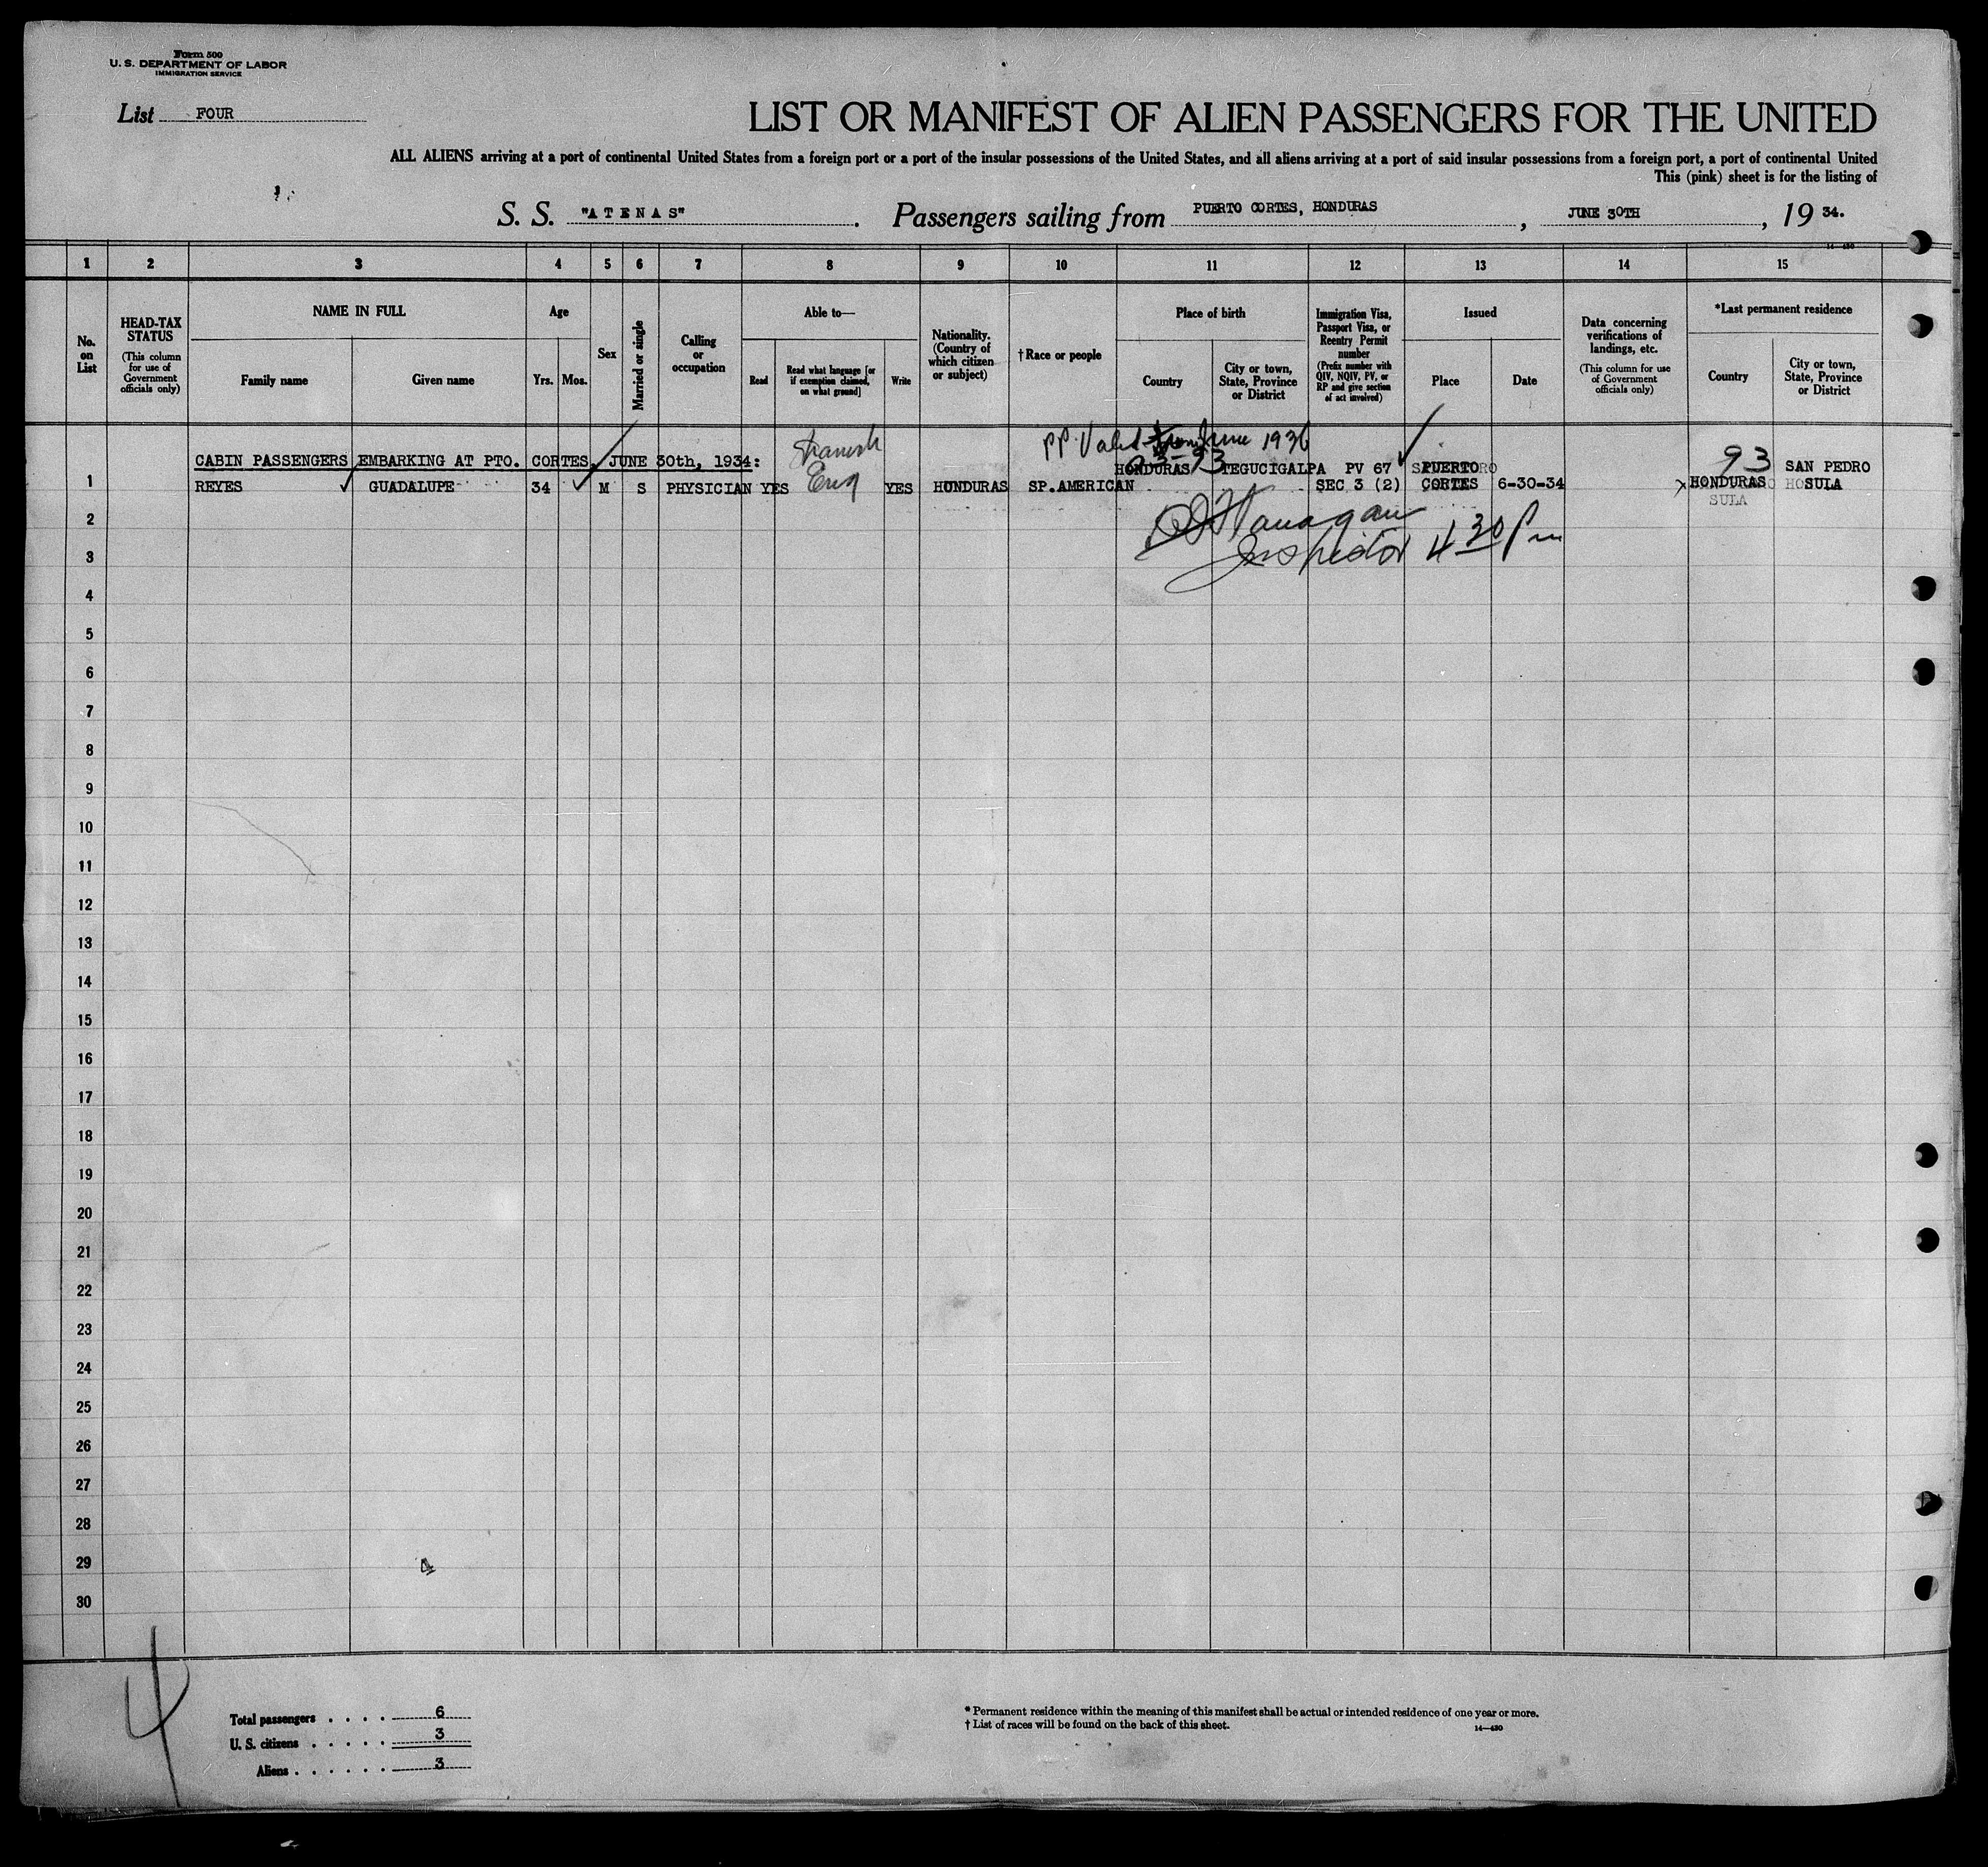 Form 500
U. S. DEPARTMENT OF LABOR
IMMIGRATION SERVICE
List FOUR
LIST OR MANIFEST OF ALIEN PASSENGERS FOR THE UNITED
ALL ALIENS arriving at a port of continental United States from a foreign port or a port of the insular possessions of the United States, and all aliens arriving at a port of said insular possessions from a foreign port, a port of continental United
This (pink) sheet is for the listing of
S. S. "ATENAS". Passengers sailing from PUERTO CORTES, HONDURAS, JUNE 30TH, 19 34.
14—430
1 2 3 4 5 6 7 8 9 10 11 12 13 14 15
No. on List
HEAD-TAX STATUS
(This column for use of Government officials only)
NAME IN FULL
Family name
Given name
Age
Yrs.
Mos.
Sex
Married or single
Calling or occupation
Able to—
Read
Read what language [or if exemption claimed, on what ground]
Write
Nationality. (Country of which citizen or subject)
†Race or people
Place of birth
Country
City or town, State, Province or District
Immigration Visa, Passport Visa, or Reentry Permit number
(Prefix number with QIV, NQIV, PV, or RP and give section of act involved)
Issued
Place
Date
Data concerning verifications of landings, etc.
(This column for use of Government officials only)
*Last permanent residence
Country
City or town, State, Province or District
PP Valid June 1936
CABIN PASSENGERS EMBARKING AT PTO. CORTES, JUNE 30th, 1934: Spanish
93
HONDURAS TEGUCIGALPA PV 67 PUERTO 93 SAN PEDRO
1 REYES GUADALUPE 34 M S PHYSICIAN YES Eng YES HONDURAS SP.AMERICAN SEC 3 (2) CORTES 6-30-34 HONDURAS SULA
SULA
2 Flanagan
3 Inspector 4 30 Pm
4
5
6
7
8
9
10
11
12
13
14
15
16
17
18
19
20
21
22
23
24
25
26
27
28
29 4
30
4
Total passengers . . . . 6
U. S. citizens . . . . . 3
Aliens . . . . . . 3
* Permanent residence within the meaning of this manifest shall be actual or intended residence of one year or more.
† List of races will be found on the back of this sheet. 14—430